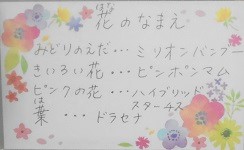 花のなまえ
はな
みどりのえだ・・・ミリオンバンブー
きいろい花・・・ピンポンマム
ピンクの花・・・ハイブリッド
スターチス
は
葉・・・ドラセナ